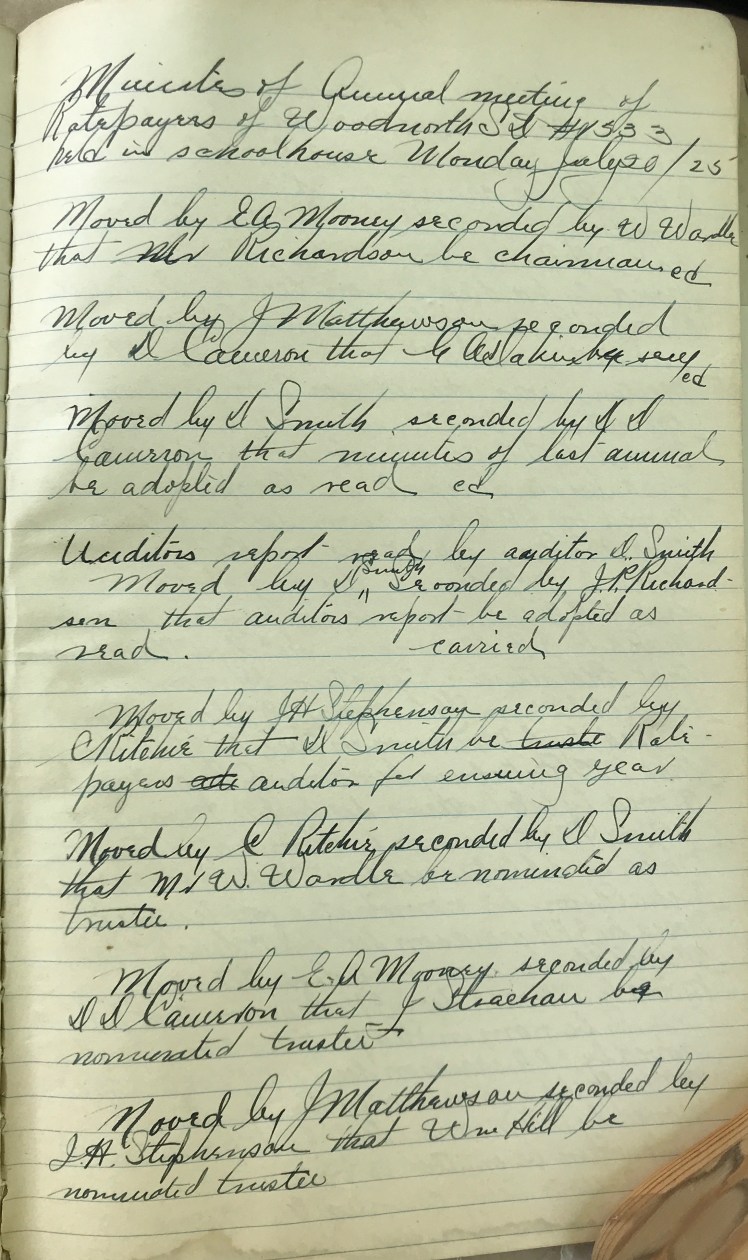 Minutes of Annual meeting of
Ratepayers of Woodnorth S D # 1533
held in schoolhouse Monday July 20/25
Moved by E A Mooney seconded by W Wardle
that Mr Richardson be chairman cd
Moved by J Matthewson seconded
by D Cameron that G be secy
cd
Moved by D Smith seconded by D D
Cameron that minutes of last annual
be adopted as read cd
Auditors report read by auditor D. Smith
Moved by D Smith Seconded by J.P. Richard-
son that auditors report be adopted as
read. carried
Moved by J H Stephenson seconded by
C Ritchie that D Smith be truste Rate-
payers auditor for ensuing year
Moved by C Ritchie seconded by D Smith
that Mr W. Wardle be nominated as
trustee.
Moved by E. A Mooney seconded by
D D Cameron that J Strachan be
nominated trustee
Moved by J Matthewson seconded by
J. H. Stephenson that Wm Hill be
nominated trustee